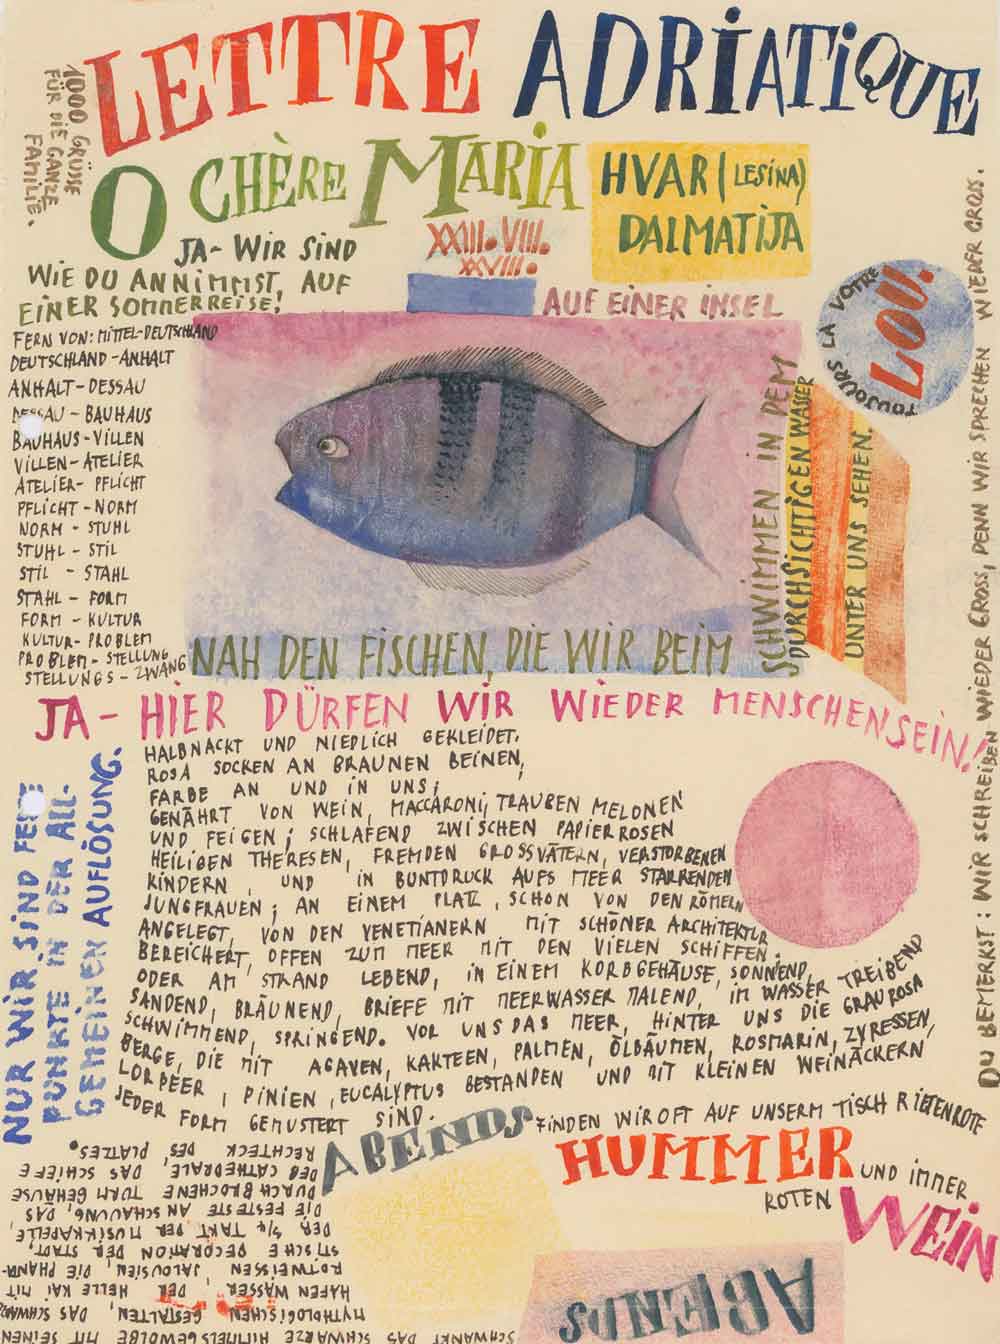 LETTRE ADRIATIQUE
1000 GRÜSSE
FÜR DIE GANZE
FAMILIE.
O CHÈRE MARIA
HVAR (LESINA)
DALMATIJA
XXIII. VIII.
XXVIII.
JA- WIR SIND
WIE DU ANNIMMST, AUF
EINER SOMMERREISE!
AUF EINER INSEL
TOUJOURS LA VOTRE
LOU.
FERN VON: MITTEL-DEUTSCHLAND
DEUTSCHLAND-ANHALT
ANHALT-DESSAU
DESSAU - BAUHAUS
BAUHAUS-VILLEN
VILLEN-ATELIER
ATELIER- PFLICHT
PFLICHT-NORM
NORM - STUHL
STUHL - STIL
STIL - STAHL
STAHL - FORM
FORM - KULTUR
KULTUR- PROBLEM
PROBLEM- STELLUNG
STELLUNGS - ZWANG
NAH DEN FISCHEN, DIE WIR BEIM
SCHWIMMEN IN DEM
DURCHSICHTIGEN WASSER
UNTER UNS SEHEN.
JA - HIER DÜRFEN WIR WIEDER MENSCHEN SEIN!
HALBNACKT UND NIEDLICH GEKLEIDET.
ROSA SOCKEN AN BRAUNEN BEINEN,
FARBE AN UND IN UNS;
GENÄHRT VON WEIN, MACCARONI, TRAUBEN MELONEN
UND FEIGEN; SCHLAFEND ZWISCHEN PAPIERROSEN
HEILIGEN THERESEN, FREMDEN GROSSVÄTERN, VERSTORBENEN
KINDERN, UND IN BUNTDRUCK AUFS MEER STARRENDEN
JUNGFRAUEN; AN EINEM PLATZ, SCHON VON DEN RÖMERN
ANGELEGT, VON DEN VENETIANERN MIT SCHÖNER ARCHITEKTUR
BEREICHERT, OFFEN ZUM MEER MIT DEN VIELEN SCHIFFEN.
ODER AM STRAND LEBEND, IN EINEM KORBGEHÄUSE, SONNEND,
SANDEND, BRÄUNEND, BRIEFE MIT MEERWASSER MALEND, IM WASSER TREIBEND
SCHWIMMEND, SPRINGEND. VOR UNS DAS MEER, HINTER UNS DIE GRAU ROSA
BERGE, DIE MIT AGAVEN, KAKTEEN, PALMEN, ÖLBÄUMEN, ROSMARIN, ZYPRESSEN,
LORBEER, PINIEN, EUCALYPTUS BESTANDEN UND MIT KLEINEN WEINÄCKERN
JEDER FORM GEMUSTERT SIND.
NUR WIR SIND FESTE
PUNKTE IN DER ALL-
GEMEINEN AUFLÖSUNG.
DU BEMERKST: WIR SCHREIBEN WIEDER GROSS, DENN WIR SPRECHEN WIEDER GROSS.
ABENDS FINDEN WIR OFT AUF UNSERM TISCH RIESENROTE
HUMMER UND IMMER
ROTEN WEIN
ABENDS
SCHWANKT DAS SCHWARZE HIMMELSGEWÖLBE MIT SEINEN
MYTHOLOGISCHEN GESTALTEN, DAS SCHWARZE
HAFEN WASSER, DER HELLE KAI MIT
ROTWEISSEN JALOUSIEN, DIE PHANTA-
STISCHE DECORATION DER STADT,
DER 3/4 TAKT DER MUSIKKAPELLE,
DIE FESTESTE ANSCHAUUNG, DAS
DURCHBROCHENE TURM GEHÄUSE
DER CATHEDRALE, DAS SCHIEFE
RECHTECK DES PLATZES.